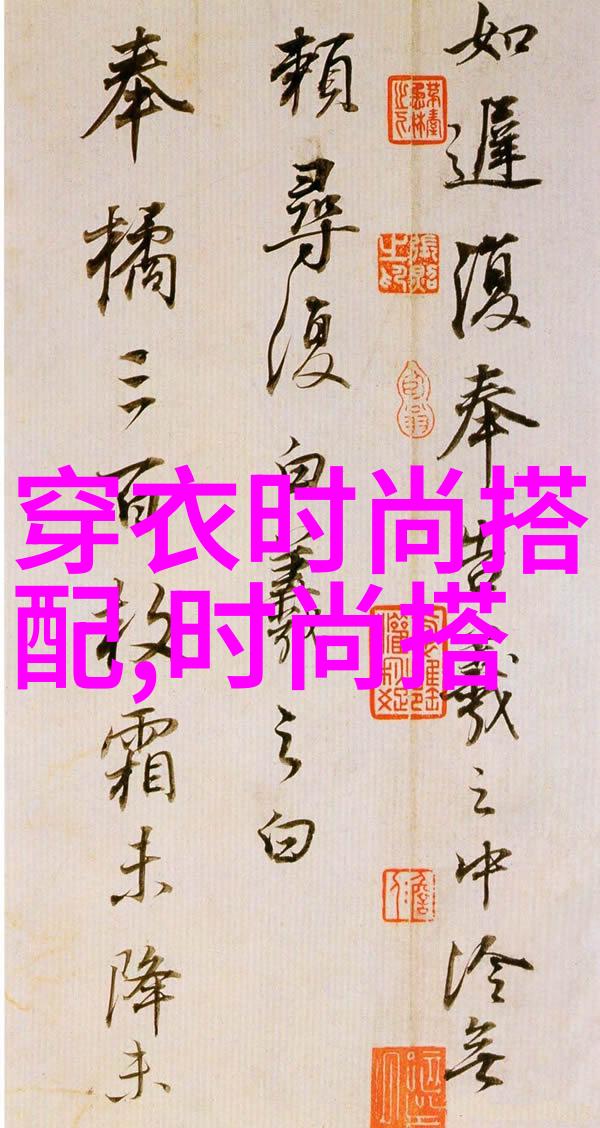 穿衣时尚搭
配,时尚搭
如遲復奉告羲之中冷無
頼尋復白羲之白
奉橘三百枚霜未降未